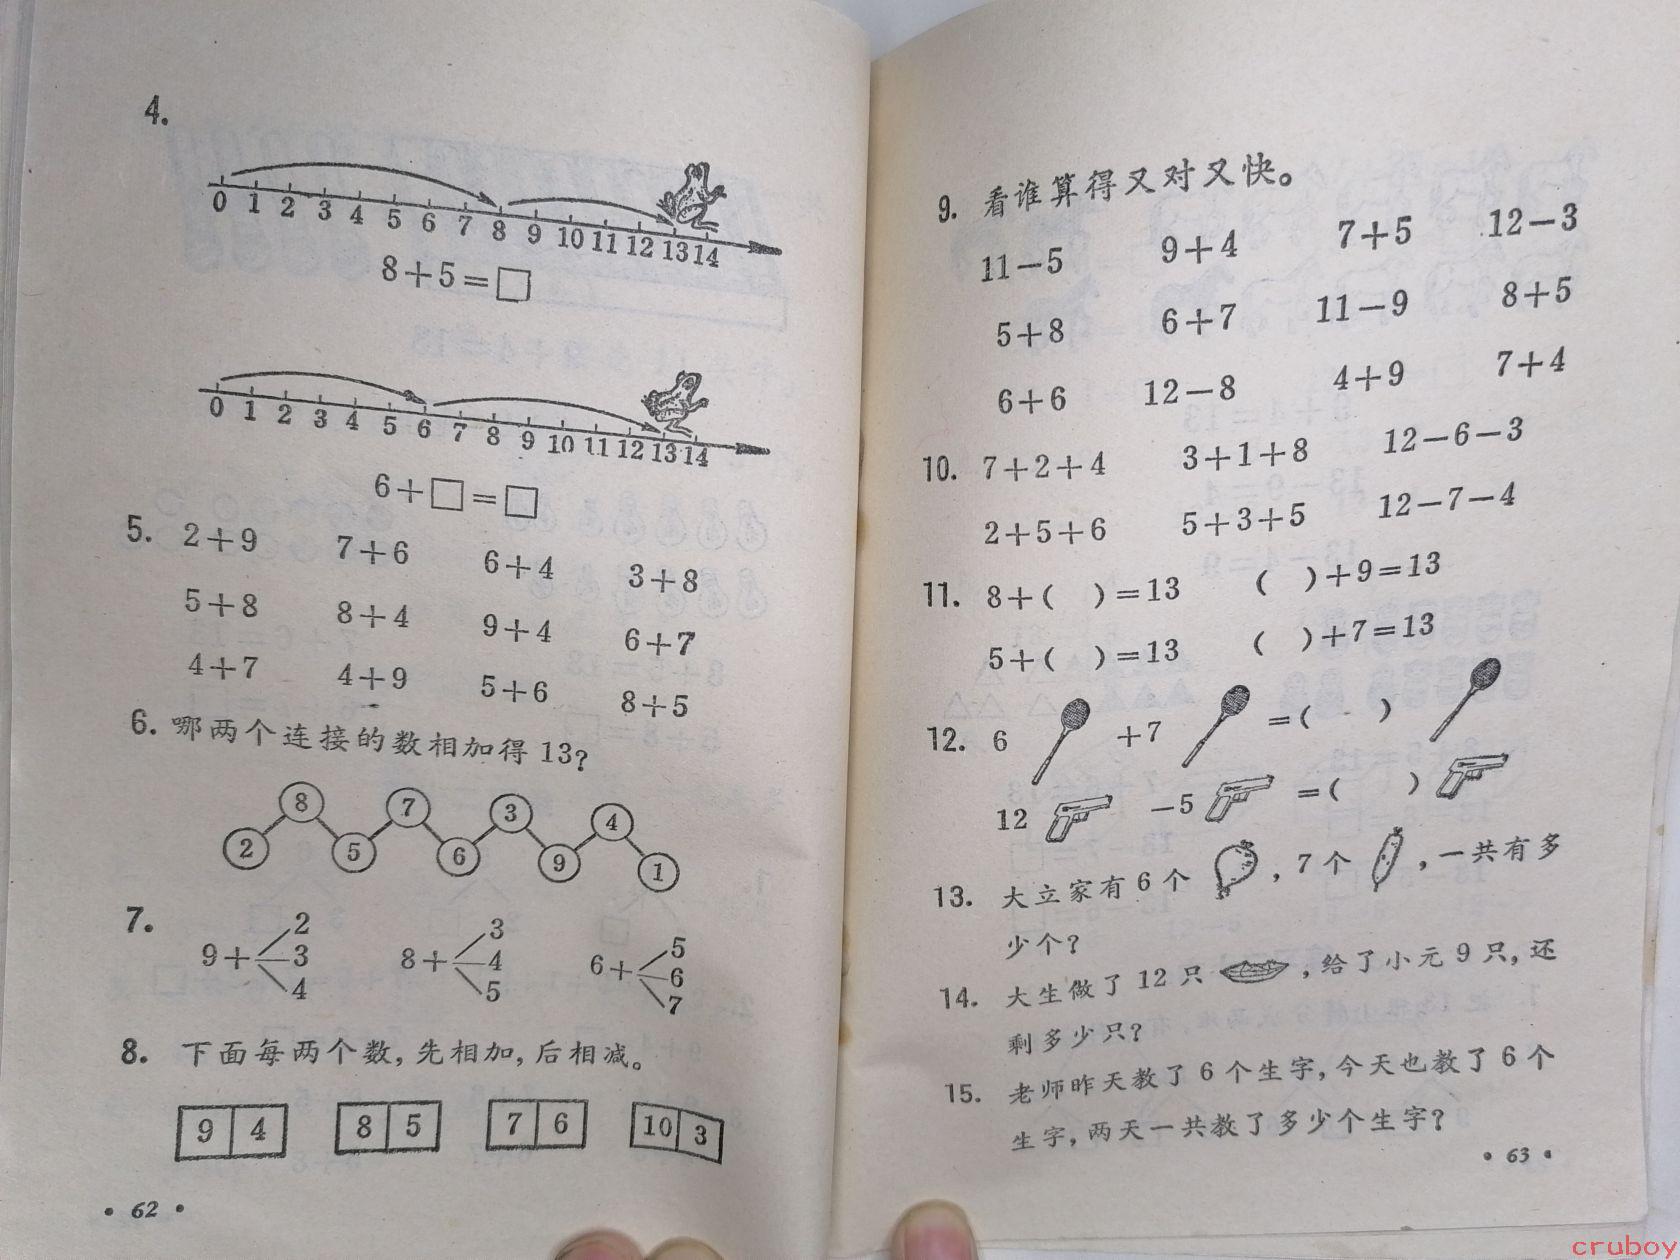 4.
0 1 2 3 4 5 6 7 8 9 10 11 12 13 14
8+5=□
0 1 2 3 4 5 6 7 8 9 10 11 12 13 14
6+□=□
5. 2+9 7+6 6+4 3+8
5+8 8+4 9+4 6+7
4+7 4+9 5+6 8+5
6. 哪两个连接的数相加得13?
8 7 3 4
2 5 6 9 1
7.
2 3 5
9+ 3 8+ 4 6+ 6
4 5 7
8. 下面每两个数,先相加,后相减。
9 4 8 5 7 6 10 3
• 62 •
9. 看谁算得又对又快。
11-5 9+4 7+5 12-3
5+8 6+7 11-9 8+5
6+6 12-8 4+9 7+4
10. 7+2+4 3+1+8 12-6-3
2+5+6 5+3+5 12-7-4
11. 8+( )=13 ( )+9=13
5+( )=13 ( )+7=13
12. 6 +7 =( )
12 -5 =( )
13. 大立家有6个 ,7个 ,一共有多
少个?
14. 大生做了12只 ,给了小元9只,还
剩多少只?
15. 老师昨天教了6个生字,今天也教了6个
生字,两天一共教了多少个生字?
• 63 •
cruboy